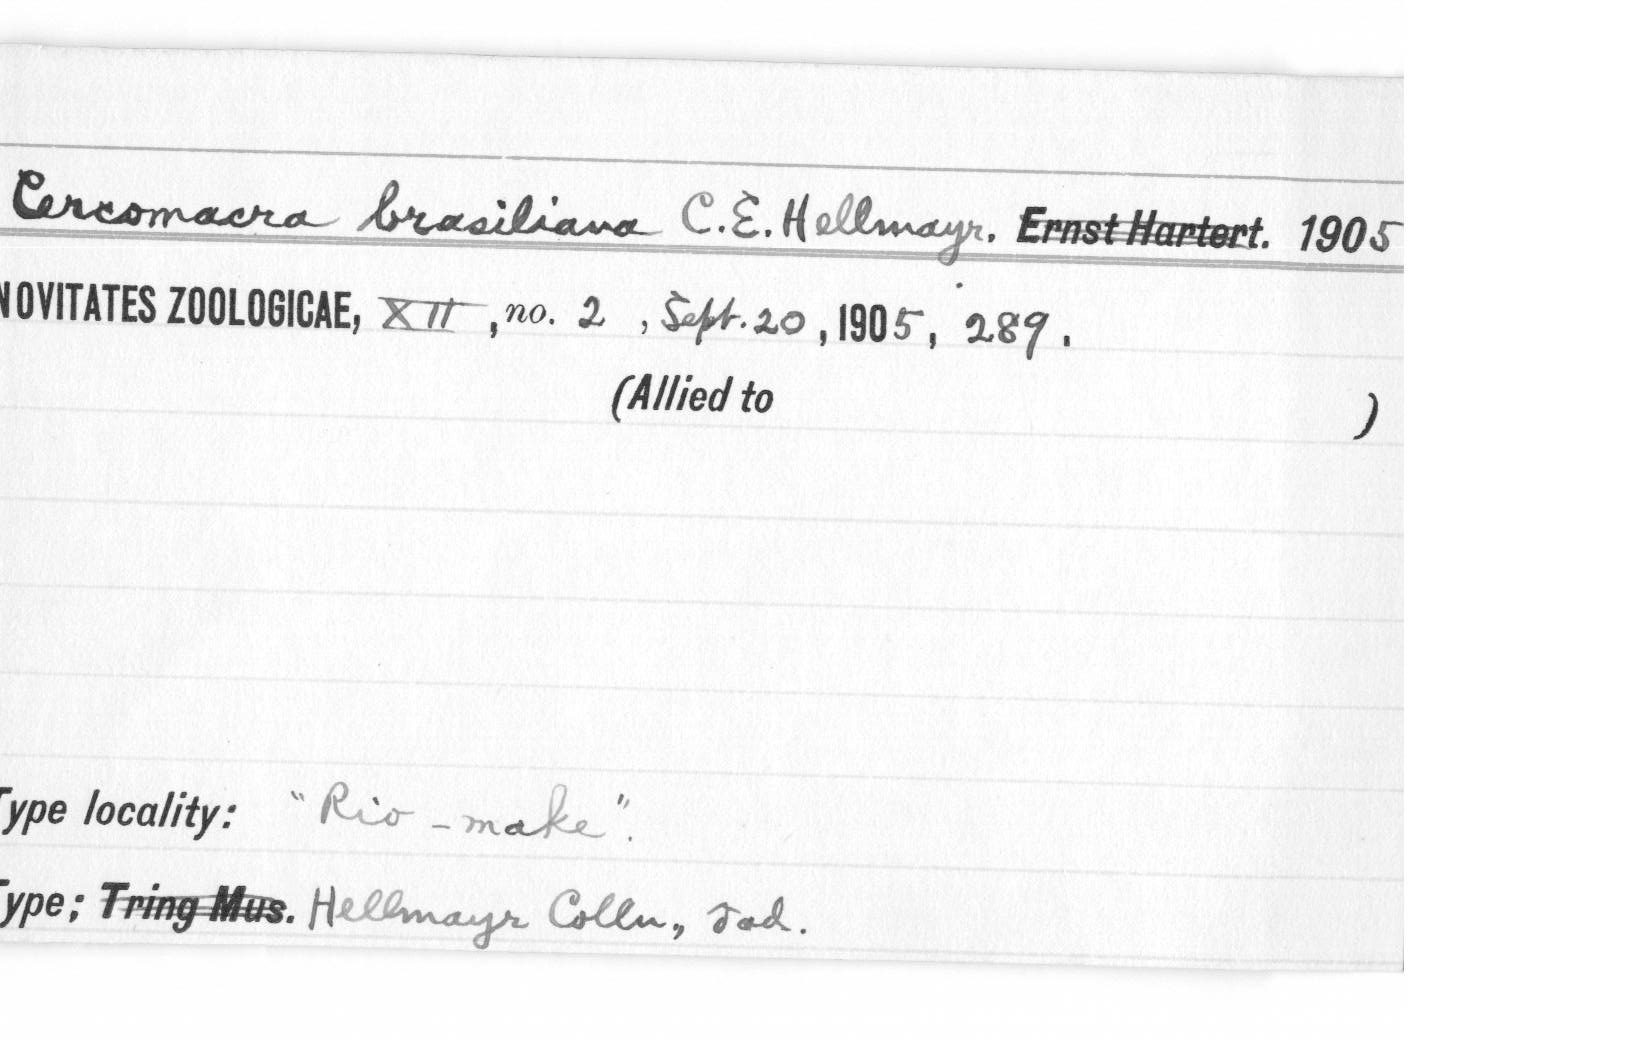 Cercomacra brasiliana C.E. Hellmayr. Ernst Hartert. 1905
NOVITATES ZOOLOGICAE, XII, no. 2, Sept. 20, 1905, 289.
(Allied to )
Type locality: "Rio-make".
Type; Tring Mus. Hellmayr Colln.,